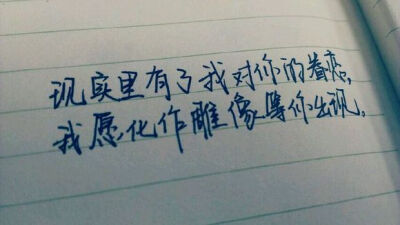 现实里有了我对你的眷恋，
我愿化作雕像等你出现。